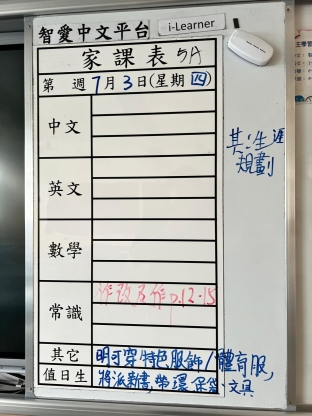 智愛中文平台 i-Learner
家課表 5A
第 週 7月3日(星期四)
中文
英文
數學
常識 作改及作 p.12-15
其它 明可穿特色服飾/體育服,
值日生 將派新書,帶環保袋、文具
其:生涯
規劃